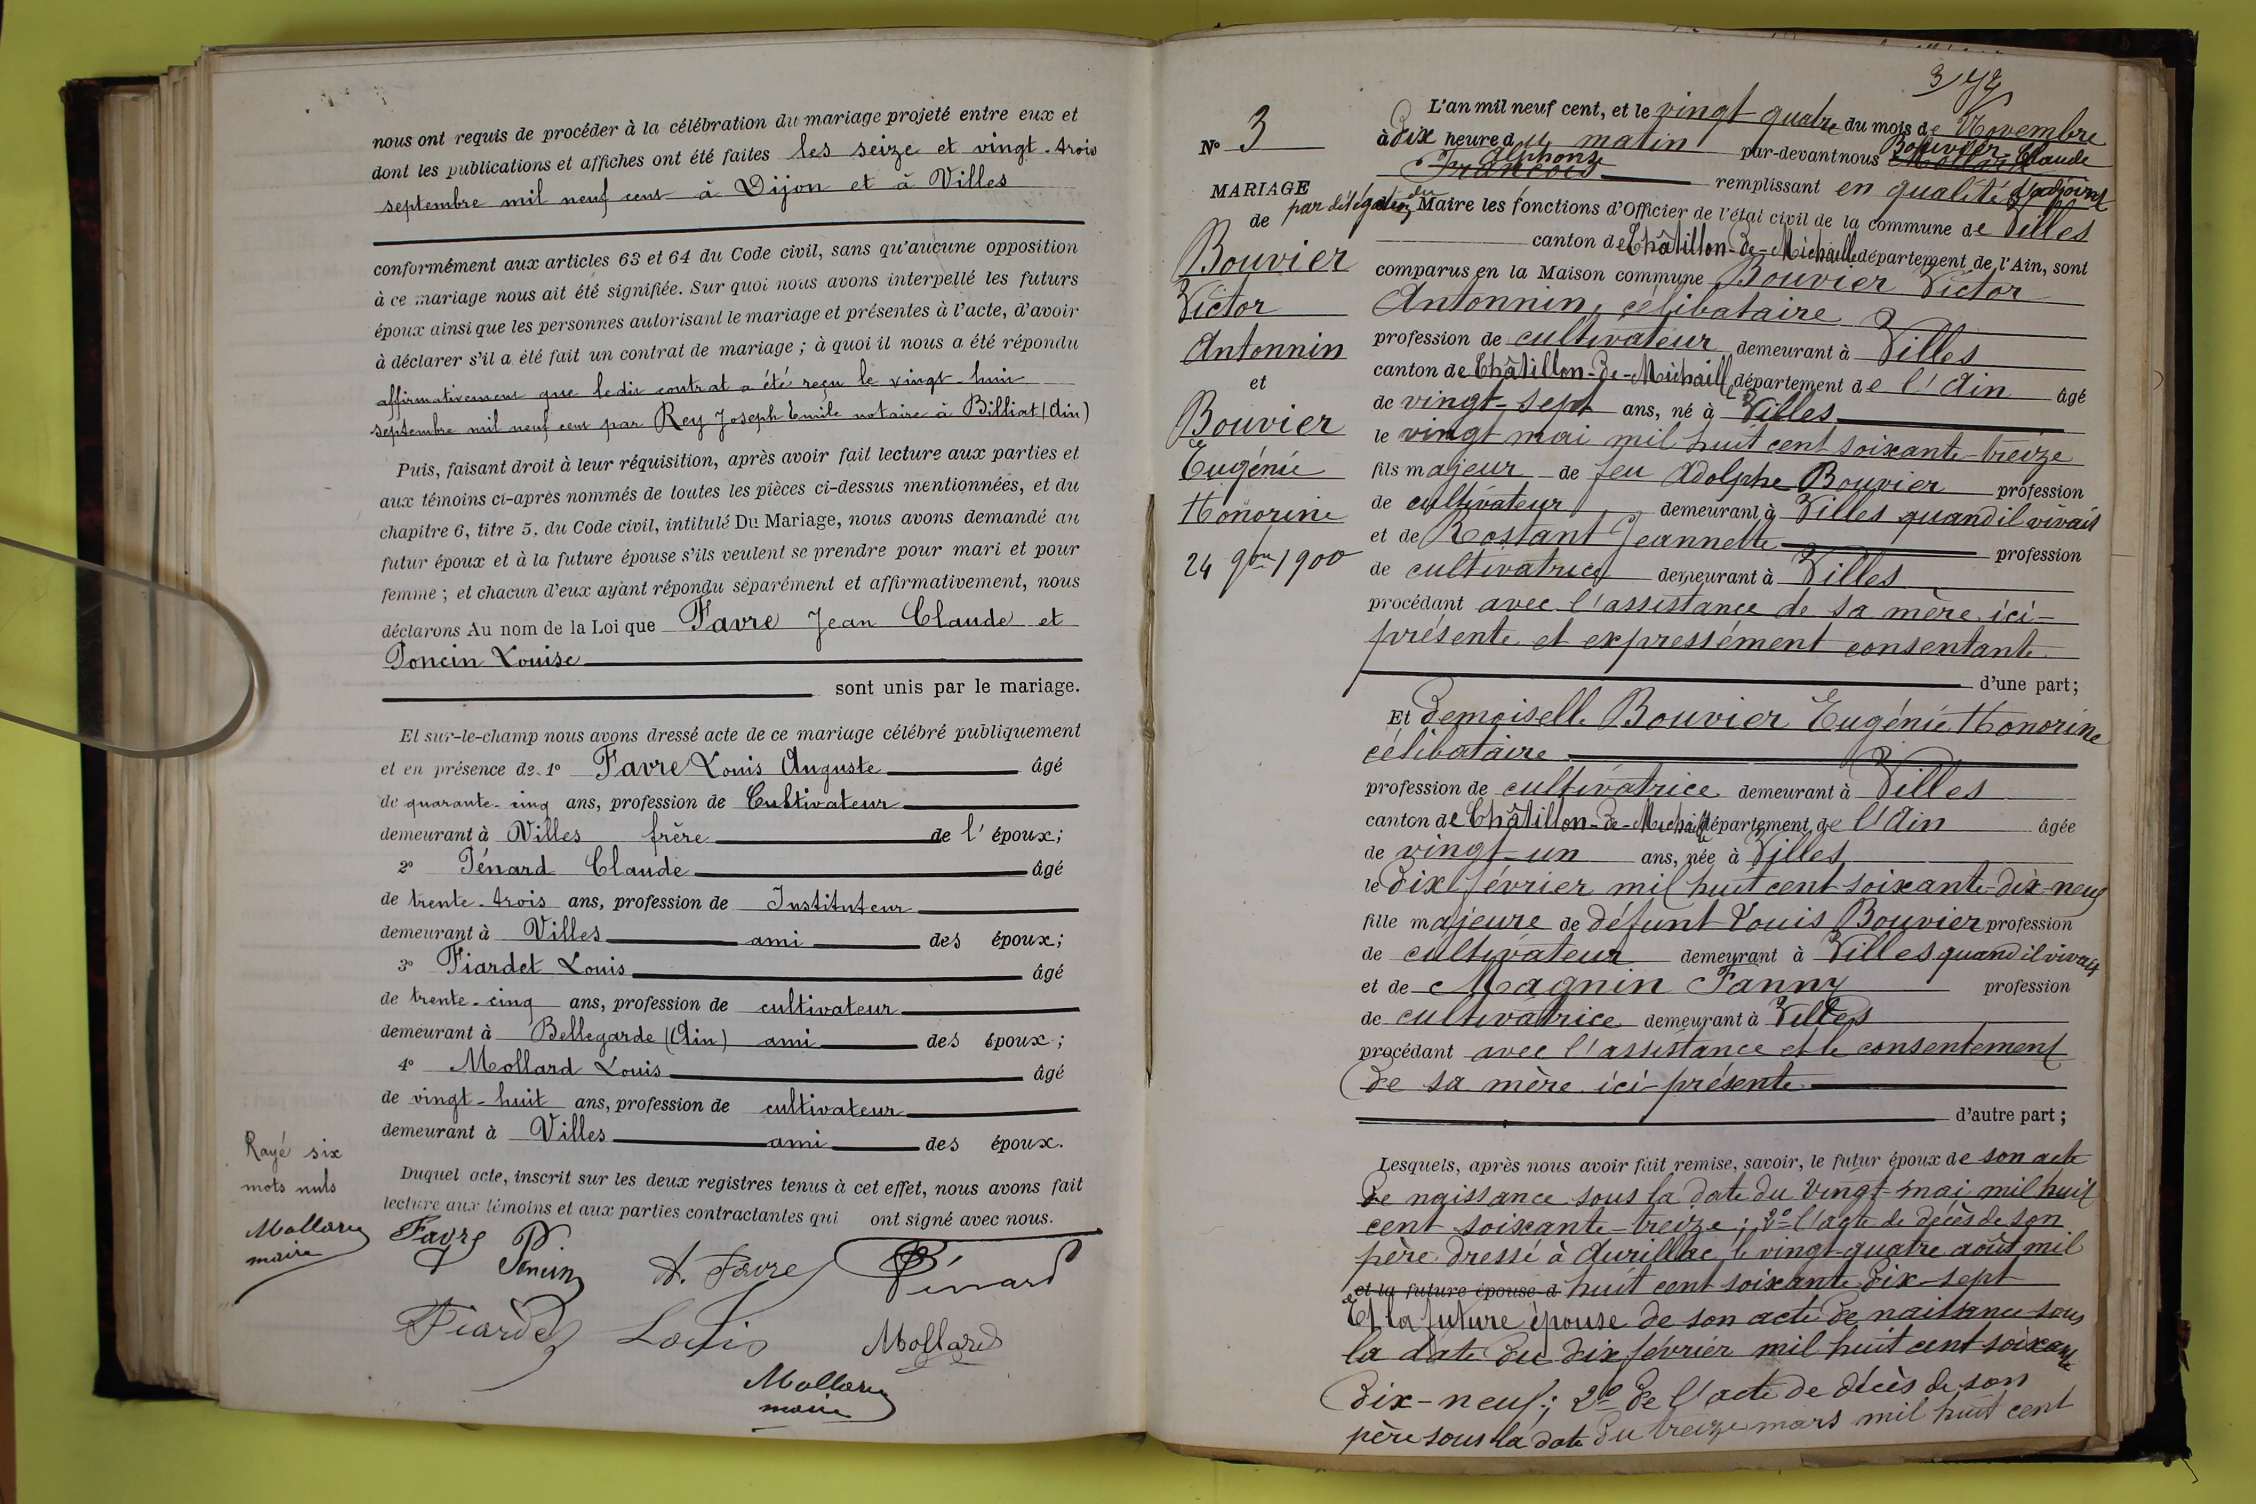 nous ont requis de procéder à la célébration du mariage projeté entre eux et
dont les publications et affiches ont été faites les seize et vingt-trois
septembre mil neuf cent à Dijon et à Villes
conformément aux articles 63 et 64 du Code civil, sans qu'aucune opposition
à ce mariage nous ait été signifiée. Sur quoi nous avons interpellé les futurs
époux ainsi que les personnes autorisant le mariage et présentes à l'acte, d'avoir
à déclarer s'il a été fait un contrat de mariage ; à quoi il nous a été répondu
affirmativement que ledit contrat a été reçu le vingt-huit
septembre mil neuf cent par Rey Joseph Emile notaire à Billiat (Ain)
Puis, faisant droit à leur réquisition, après avoir fait lecture aux parties et
aux témoins ci-après nommés de toutes les pièces ci-dessus mentionnées, et du
chapitre 6, titre 5, du Code civil, intitulé Du Mariage, nous avons demandé au
futur époux et à la future épouse s'ils veulent se prendre pour mari et pour
femme ; et chacun d'eux ayant répondu séparément et affirmativement, nous
déclarons Au nom de la Loi que Favre Jean Claude et
Poncin Louise
sont unis par le mariage.
Et sur-le-champ nous avons dressé acte de ce mariage célébré publiquement
et en présence de 1° Favre Louis Auguste âgé
de quarante-cinq ans, profession de Cultivateur
demeurant à Villes frère de l'époux;
2° Pénard Claude âgé
de trente-trois ans, profession de Instituteur
demeurant à Villes ami des époux;
3° Fiardet Louis âgé
de trente-cinq ans, profession de cultivateur
demeurant à Bellegarde (Ain) ami des époux;
4° Mollard Louis âgé
de vingt-huit ans, profession de cultivateur
demeurant à Villes ami des époux.
Duquel acte, inscrit sur les deux registres tenus à cet effet, nous avons fait
lecture aux témoins et aux parties contractantes qui ont signé avec nous.
Rayé six
mots nuls
Mollard
maire
Favre Poncin A. Favre Pénard
Fiardet Louis Mollard
Mollard
maire
N° 3
MARIAGE
de
Bouvier
Victor
Antonnin
et
Bouvier
Eugénie
Honorine
24 9bre 1900
L'an mil neuf cent, et le vingt quatre du mois de Novembre
à Dix heure du matin par-devant nous Bouvier Claude
Alphonse
François remplissant en qualité d'adjoint
par délégation du Maire les fonctions d'Officier de l'état civil de la commune de Villes
canton de Châtillon-de-Michaille département de l'Ain, sont
comparus en la Maison commune Bouvier Victor
Antonnin, célibataire
profession de cultivateur demeurant à Villes
canton de Châtillon-de-Michaille département de l'Ain âgé
de vingt-sept ans, né à Villes
le vingt mai mil huit cent soixante-treize
fils majeur de feu Adolphe Bouvier profession
de cultivateur demeurant à Villes quand il vivait
et de Rostant Jeannette profession
de cultivatrice demeurant à Villes
procédant avec l'assistance de sa mère ici-
présente et expressément consentante
d'une part;
Et demoiselle Bouvier Eugénie Honorine
célibataire
profession de cultivatrice demeurant à Villes
canton de Châtillon-de-Michaille département de l'Ain âgée
de vingt-un ans, née à Villes
le Dix février mil huit cent soixante-dix-neuf
fille majeure de défunt Louis Bouvier profession
de cultivateur demeurant à Villes quand il vivait
et de Magnin Fanny profession
de cultivatrice demeurant à Villes
procédant avec l'assistance et le consentement
de sa mère ici-présente
d'autre part;
Lesquels, après nous avoir fait remise, savoir, le futur époux de son acte
de naissance sous la date du vingt mai mil huit
cent soixante-treize; 2° l'acte de décès de son
père dressé à Aurillac le vingt-quatre août mil
et la future épouse d huit cent soixante dix-sept
Et la future épouse de son acte de naissance sous
la date du dix février mil huit cent soixante
dix-neuf; 2° de l'acte de décès de son
père sous la date du treize mars mil huit cent